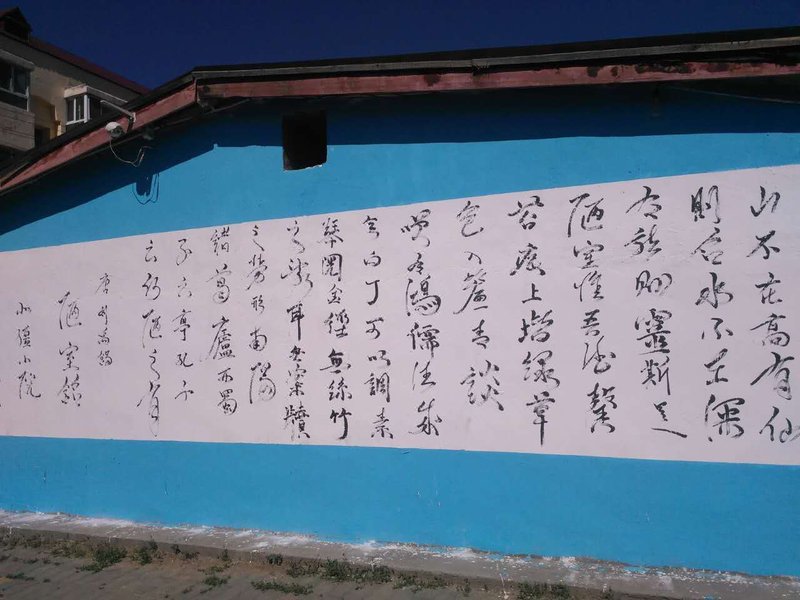 山不在高有仙
則名水不在深
有龍則靈斯是
陋室惟吾德馨
苔痕上堦綠草
色入簾青談
笑有鴻儒往來
無白丁可以調素
琴閱金經無絲竹
之亂耳無案牘
之勞形南陽
諸葛廬西蜀
子云亭孔子
云何陋之有
唐劉禹錫
陋室銘
北疆小院